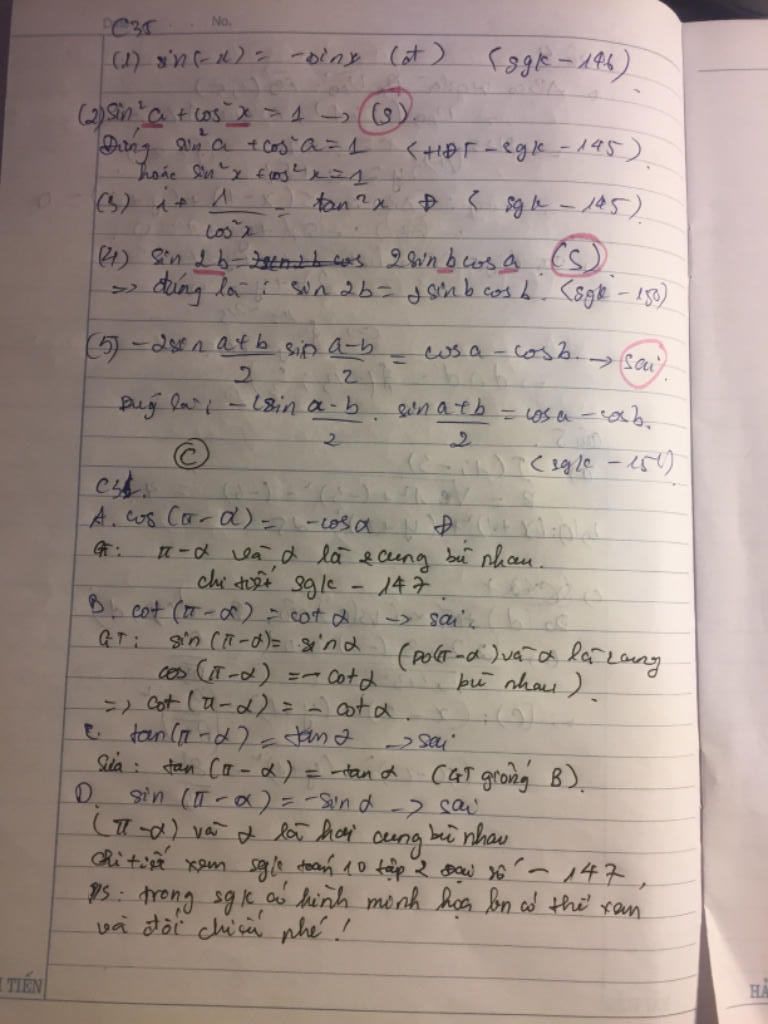 No.
C35
(1) sin(-x) = -sinx (đt) (sgk - 146)
(2) sin²a + cos²x = 1 → (S).
Đúng sin²a + cos²a = 1 (HĐT - sgk - 145)
hoặc sin²x + cos²x = 1
(3) 1 / cos²x = tan²x Đ (sgk - 145)
(4) sin 2b = 2sinbcosa (S)
=> đúng là: sin 2b = 2sinbcosb. (sgk - 150)
(5) -2sin a+b/2 sin a-b/2 = cosa - cosb. → sai
sin a-b/2 . sin a+b/2 = cosa - cosb.
(C) (sgk - 151)
A. cos(π-α) = -cosα Đ
π-α và α là 2 cung bù nhau.
chi tiết sgk - 147
B. cot(π-α) = cot α → sai.
GT: sin(π-α) = sinα (Do (π-α) và α là 2 cung
cos(π-α) = -cotα bù nhau).
=> cot(π-α) = - cotα.
C. tan(π-α) = tanα → sai
Sửa: tan(π-α) = -tanα (GT giống B).
D. sin(π-α) = -sinα → sai
(π-α) và α là hai cung bù nhau
chi tiết xem sgk toán 10 tập 2 đại số - 147,
PS: trong sgk có hình minh họa bn có thể xem
và đối chiếu nhé!
TIẾN
HẢ